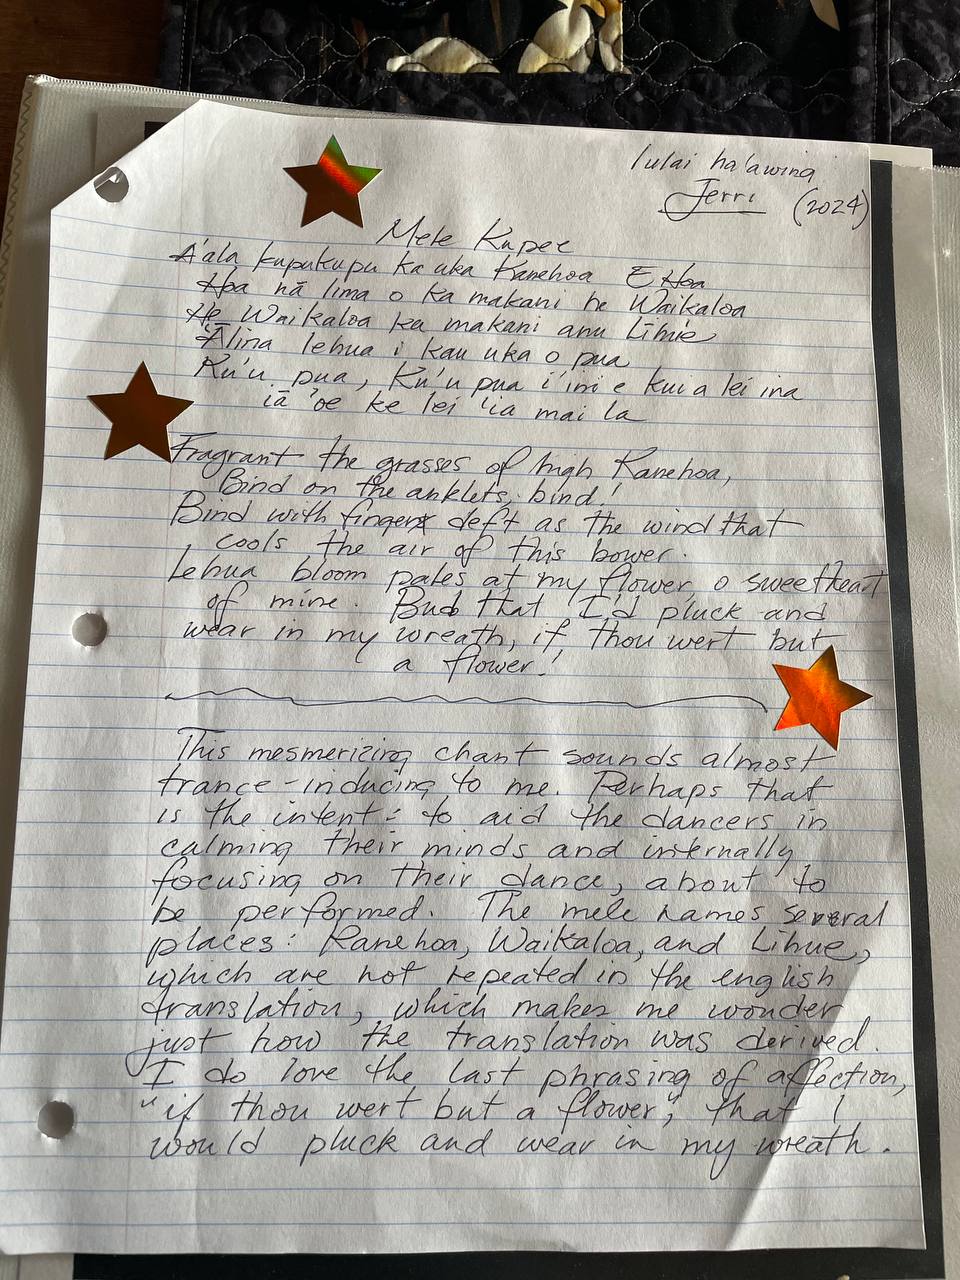 Iulai ha'awina
Jerri (2024)
Mele Kupee
A'ala kupukupu ka uka Kanehoa E Hoa
Hoa nā lima o ka makani he Waikaloa
He Waikaloa ka makani anu Līhue
'Ālina lehua i kau uka o pua
Ku'u pua, Ku'u pua i'ini e kui a lei ina
iā 'oe ke lei 'ia mai la
Fragrant the grasses of high Kanehoa,
Bind on the anklets, bind!
Bind with fingers deft as the wind that
cools the air of this bower.
Lehua bloom pales at my flower, o sweetheart
of mine. Bud that I'd pluck and
wear in my wreath, if, thou wert but
a flower!
This mesmerizing chant sounds almost
trance-inducing to me. Perhaps that
is the intent: to aid the dancers in
calming their minds and internally
focusing on their dance, about to
be performed. The mele names several
places: Kanehoa, Waikaloa, and Lihue,
which are not repeated in the english
translation, which makes me wonder
just how the translation was derived.
I do love the last phrasing of affection,
"if thou wert but a flower," that I
would pluck and wear in my wreath.